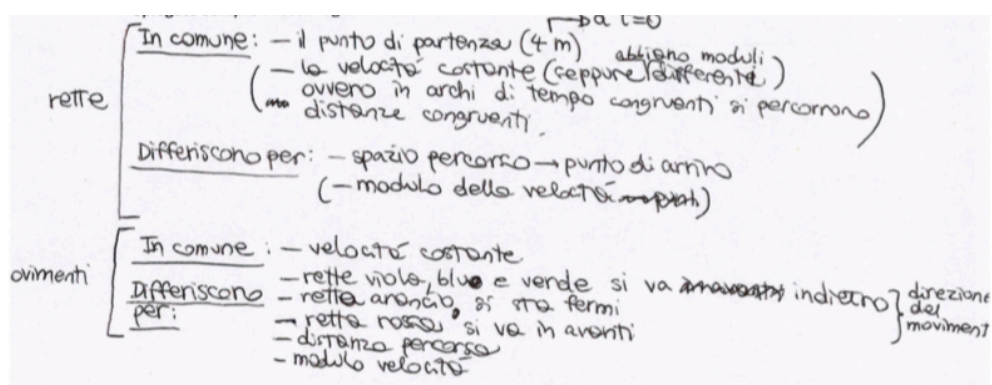 Da t=0
In comune: - il punto di partenza (4 m)
abbiano moduli
(- la velocità costante (seppure differente)
ovvero in archi di tempo congruenti si percorrono
distanze congruenti.)
rette
Differiscono per: - spazio percorso → punto di arrivo
(- modulo della velocità)
In comune: - velocità costante
ovimenti
- rette viola, blu e verde si va indietro
Differiscono per:
- retta arancio, si sta fermi
- retta rossa, si va in avanti
direzione del moviment
- distanza percorsa
- modulo velocità